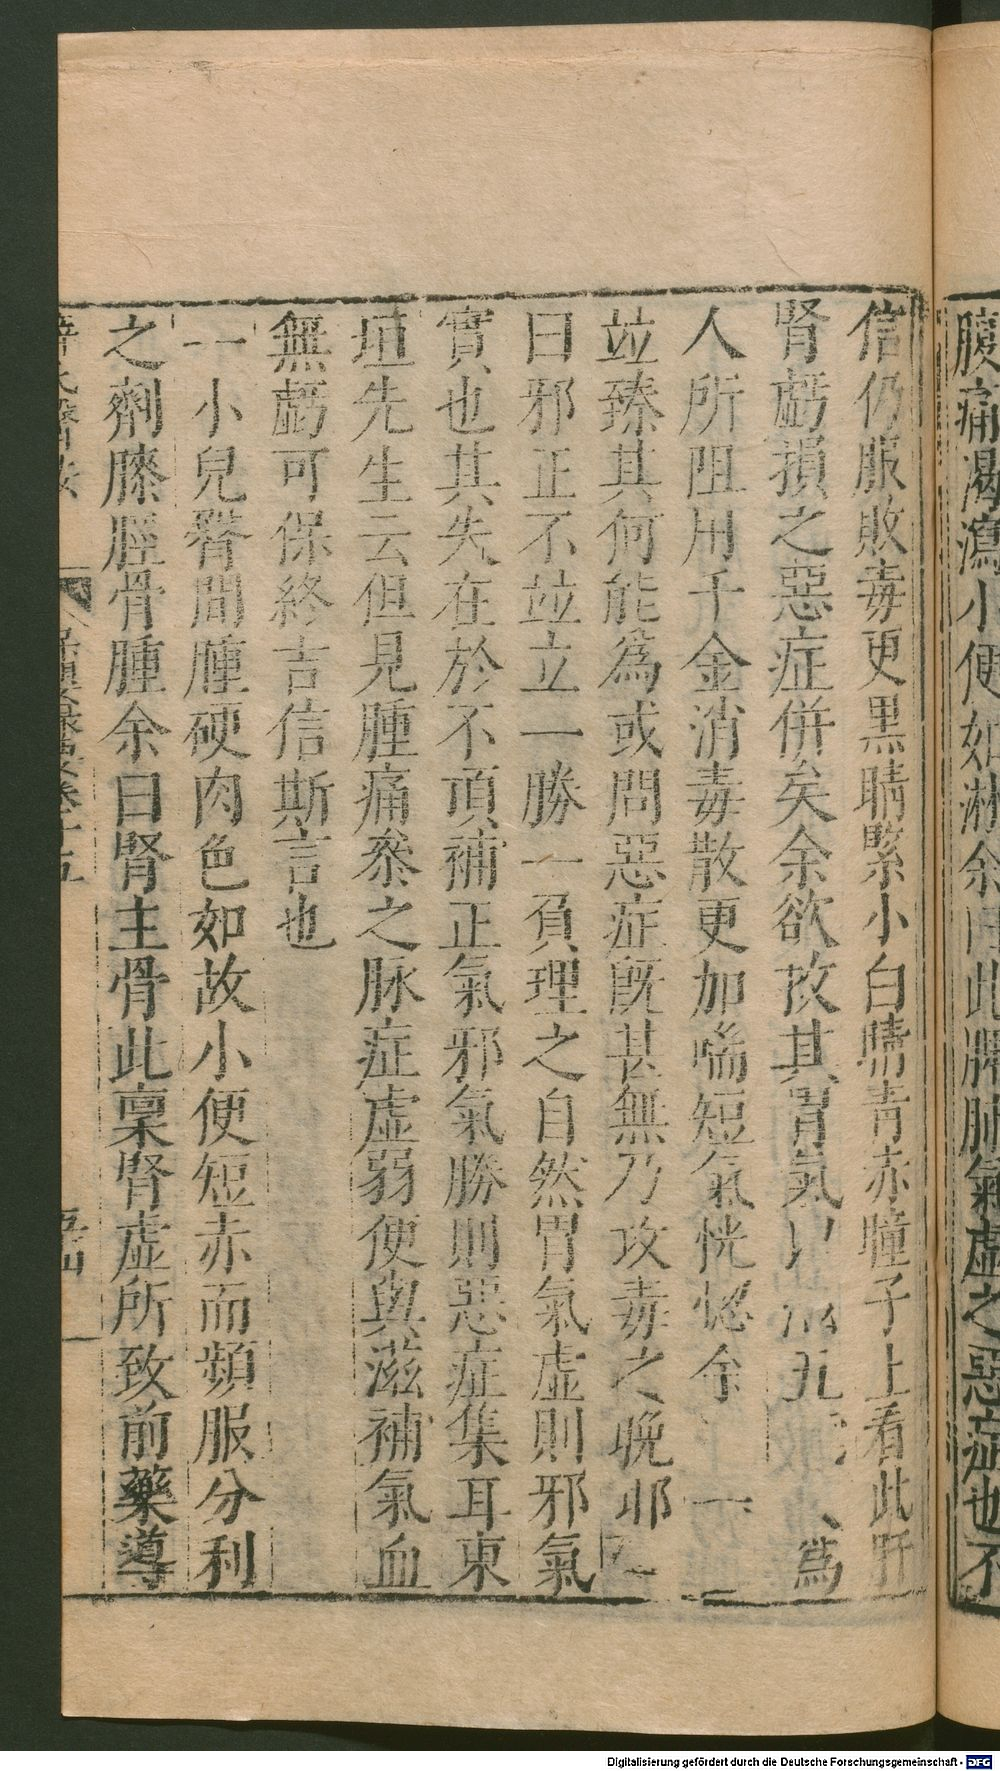 膿痛渴瀉小便如淋余曰此脾肺氣虛之惡症也不
信仍服敗毒更黑睛緊小白睛青赤瞳子上看此肝
腎虧損之惡症併矣余欲救其胃氣以 為
人所阻用千金消毒散更加喘短氣恍惚余曰
竝臻其何能為或問惡症既甚無乃攻毒之晚耶
曰邪正不竝立一勝一負理之自然胃氣虛則邪氣
實也其失在於不頂補正氣邪氣勝則惡症集耳東
垣先生云但見腫痛叅之脉症虛弱便與滋補氣血
無虧可保終吉信斯言也
一小兒臀間腫硬肉色如故小便短赤而頻服分利
之劑膝脛骨腫余曰腎主骨此稟腎虛所致前藥導
Digitalisierung gefördert durch die Deutsche Forschungsgemeinschaft - DFG